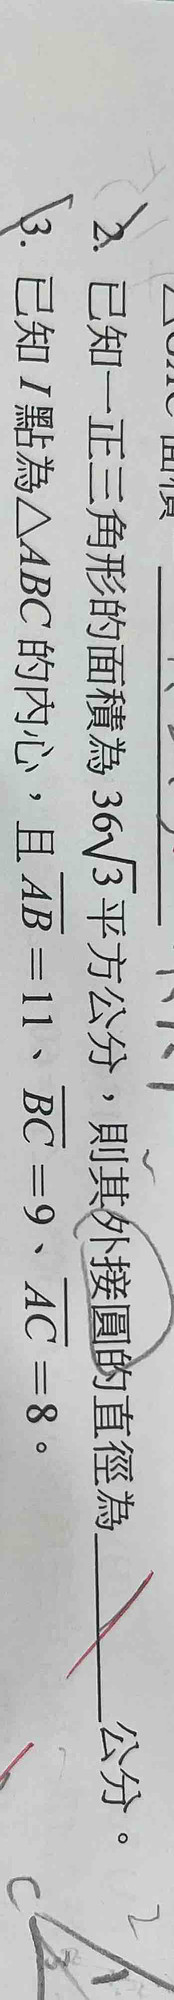 2. 已知一正三角形的面積為 36√3 平方公分，則其外接圓的直徑為＿＿＿＿公分。
3. 已知 I 點為△ABC 的內心，且 A̅B̅＝11、B̅C̅＝9、A̅C̅＝8。
C
2